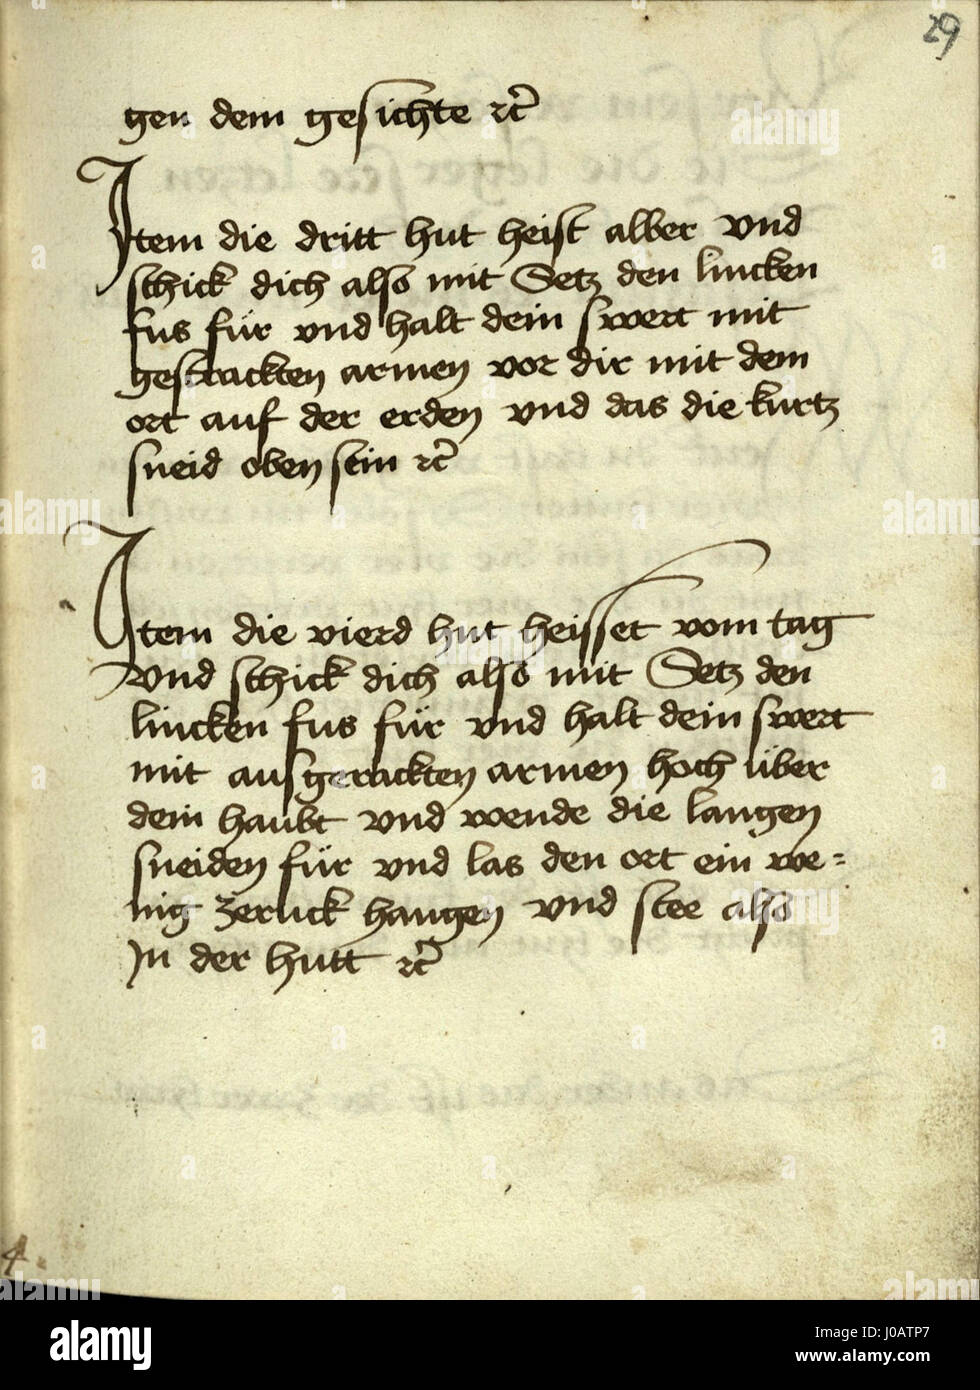 29
gen dem gesichte rc̄
Item die dritt hut heist alber vnd
schick dich also mit Setz den lincken
fus für vnd halt dein swert mit
gestrackten armen vor dir mit dem
ort auf der erden vnd das die kurtz
sneid oben sein rc̄
Item die vierd hut heisset vom tag
vnd schick dich also mit Setz den
lincken fus für vnd halt dein swert
mit ausgerackten armen hoch über
dein haubt vnd wende die langen
sneiden für vnd las den ort ein we=
nig zeruck hangen vnd stee also
In der hutt rc̄
4
alamy
Image ID: J0ATP7
www.alamy.com